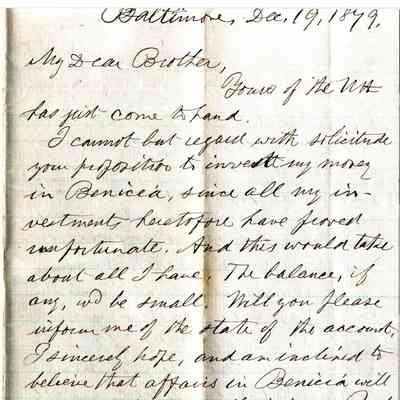 Baltimore, Dec. 19, 1879.
My Dear Brother,
Yours of the 11th
has just come to hand.
I cannot but regard with solicitude
your proposition to invest my money
in Benicia, since all my in-
vestments heretofore have proved
unfortunate. And this would take
about all I have. The balance, if
any, wd be small. Will you please
inform me of the state of the account.
I sincerely hope, and am inclined to
believe that affairs in Benicia will